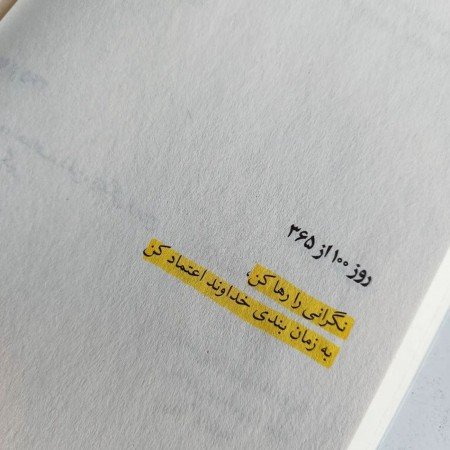 روز ۱۰۰ از ۳۶۵
نگرانی را رها کن،
به زمان بندی خداوند اعتماد کن